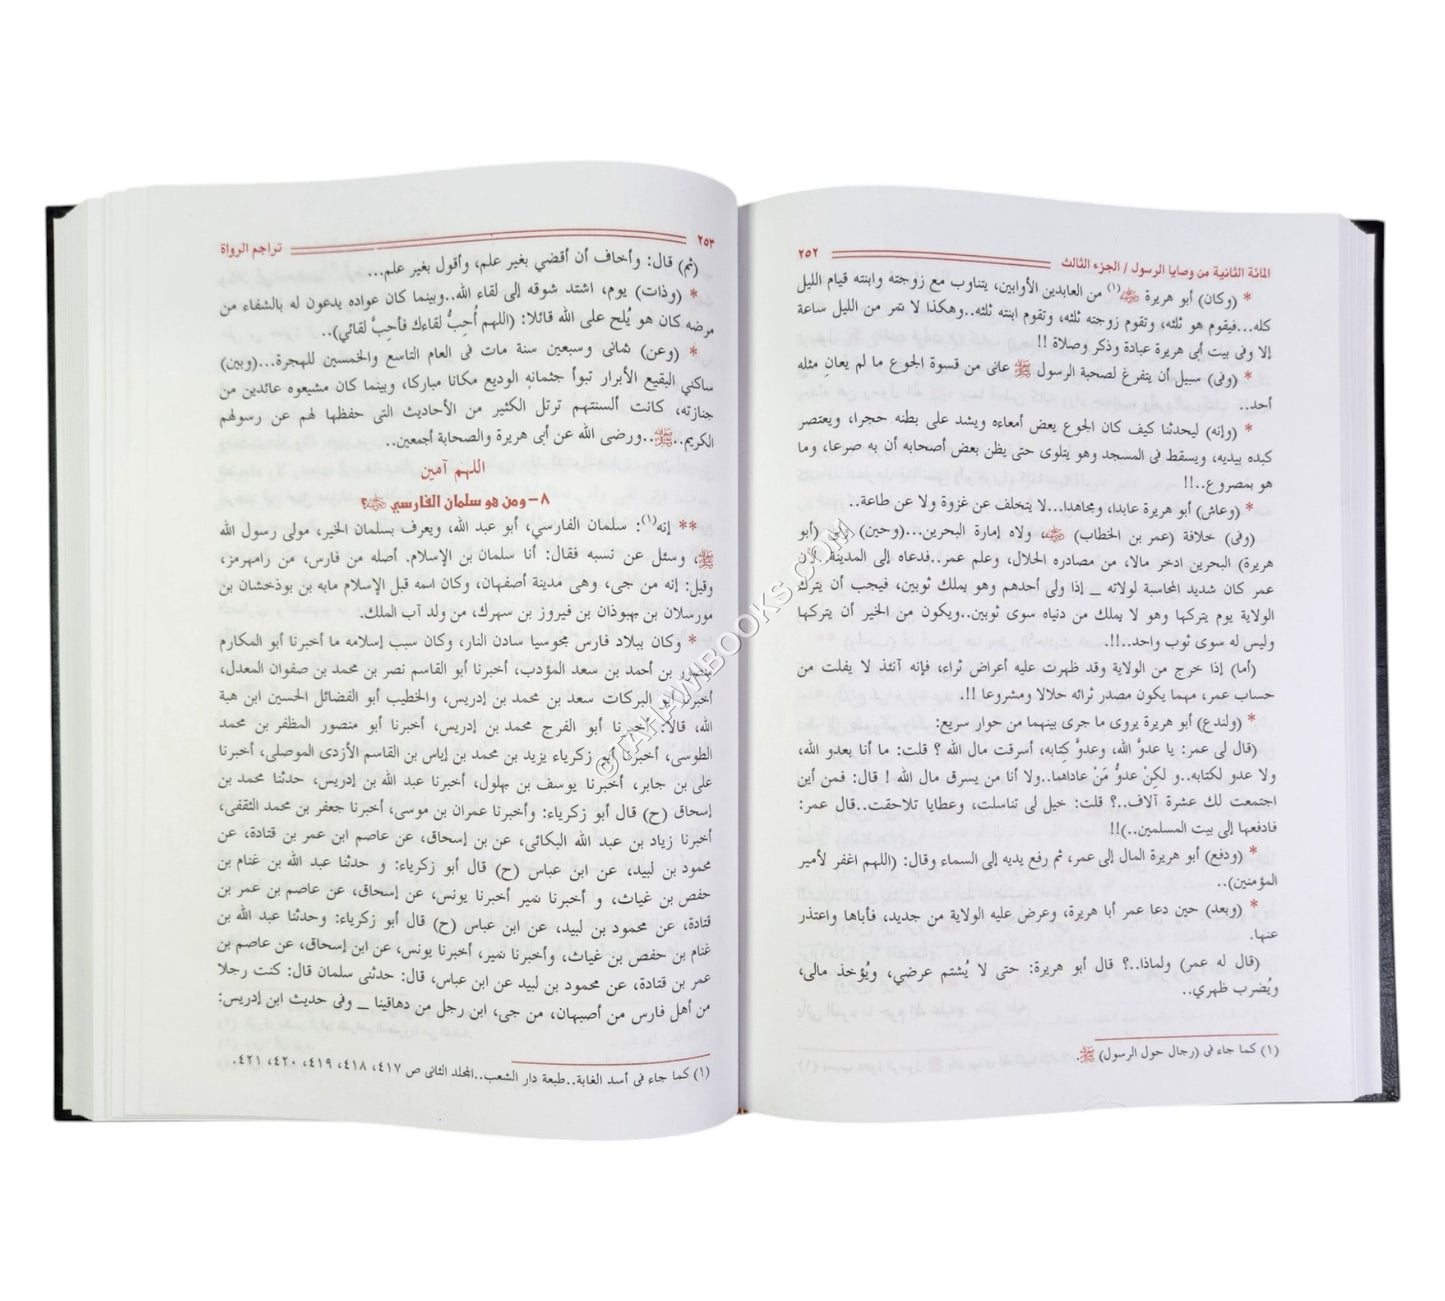 المائة الثانية من وصايا الرسول / الجزء الثالث
٢٥٢
* (وكان) أبو هريرة ﵁(١) من العابدين الأوابين، يتناوب مع زوجته وابنته قيام الليل
كله...فيقوم هو ثلثه، وتقوم زوجته ثلثه، وتقوم ابنته ثلثه..وهكذا لا تمر من الليل ساعة
إلا وفى بيت أبى هريرة عبادة وذكر وصلاة !!
* (وفى) سبيل أن يتفرغ لصحبة الرسول ﷺ عانى من قسوة الجوع ما لم يعانِ مثله
أحد..
* (وإنه) ليحدثنا كيف كان الجوع يعض أمعاءه ويشد على بطنه حجرا، ويعتصر
كبده بيديه، ويسقط فى المسجد وهو يتلوى حتى يظن بعض أصحابه أن به صرعا، وما
هو بمصروع..!!
* (وعاش) أبو هريرة عابدا، ومجاهدا...لا يتخلف عن غزوة ولا عن طاعة..
(وفى) خلافة (عمر بن الخطاب) ﵁، ولاه إمارة البحرين...(وحين) ولى (أبو
هريرة) البحرين ادخر مالا، من مصادره الحلال، وعلم عمر..فدعاه إلى المدينة لأن
عمر كان شديد المحاسبة لولاته _ إذا ولى أحدهم وهو يملك ثوبين، فيجب أن يترك
الولاية يوم يتركها وهو لا يملك من دنياه سوى ثوبين..ويكون من الخير أن يتركها
وليس له سوى ثوب واحد..!!.
(أما) إذا خرج من الولاية وقد ظهرت عليه أعراض ثراء، فإنه آنئذ لا يفلت من
حساب عمر، مهما يكون مصدر ثرائه حلالا ومشروعا !!.
* (ولندع) أبو هريرة يروى ما جرى بينهما من حوار سريع:
(قال لى عمر: يا عدوَّ الله، وعدوَّ كِتابه، أسرقت مال الله ؟ قلت: ما أنا بعدو الله،
ولا عدو لكتابه..و لكِنْ عدوُّ مَنْ عاداهما..ولا أنا من يسرق مال الله ! قال: فمن أين
اجتمعت لك عشرة آلاف..؟ قلت: خيل لى تناسلت، وعطايا تلاحقت..قال عمر:
فادفعها إلى بيت المسلمين..)!!
* (ودفع) أبو هريرة المال إلى عمر، ثم رفع يديه إلى السماء وقال: (اللهم اغفر لأمير
المؤمنين)..
* (وبعد) حين دعا عمر أبا هريرة، وعرض عليه الولاية من جديد، فأباها واعتذر
عنها.
(قال له عمر) ولماذا..؟ قال أبو هريرة: حتى لا يُشتم عرضي، ويُؤخذ مالى،
ويُضرب ظهري..
(١) كما جاء فى (رجال حول الرسول) ﷺ.
٢٥٣
تراجم الرواة
(ثم) قال: وأخاف أن أقضي بغير علم، وأقول بغير علم...
* (وذات) يوم، اشتد شوقه إلى لقاء الله..وبينما كان عواده يدعون له بالشفاء من
مرضه كان هو يُلح على الله قائلا: (اللهم أُحِبُّ لقاءك فأحِبَّ لقائي)..
* (وعن) ثمانى وسبعين سنة مات فى العام التاسع والخمسين للهجرة...(وبين)
ساكني البقيع الأبرار تبوأ جثمانه الوديع مكانا مباركا، وبينما كان مشيعوه عائدين من
جنازته، كانت ألسنتهم ترتل الكثير من الأحاديث التى حفظها لهم عن رسولهم
الكريم..ﷺ..ورضى الله عن أبى هريرة والصحابة أجمعين..
اللهم آمين
٨ – ومن هو سلمان الفارسي ﵁؟
** إنه(١): سلمان الفارسي، أبو عبد الله، ويعرف بسلمان الخير، مولى رسول الله
ﷺ، وسئل عن نسبه فقال: أنا سلمان بن الإسلام. أصله من فارس، من رامهرمز،
وقيل: إنه من جى، وهى مدينة أصفهان، وكان اسمه قبل الإسلام مابه بن بوذخشان بن
مورسلان بن بهبوذان بن فيروز بن سهرك، من ولد آب الملك.
* وكان ببلاد فارس مجوسيا سادن النار، وكان سبب إسلامه ما أخبرنا أبو المكارم
منصور بن أحمد بن سعد المؤدب، أخبرنا أبو القاسم نصر بن محمد بن صفوان المعدل،
أخبرنا أبو البركات سعد بن محمد بن إدريس، والخطيب أبو الفضائل الحسين ابن هبة
الله، قالا: أخبرنا أبو الفرج محمد بن إدريس، أخبرنا أبو منصور المظفر بن محمد
الطوسى، أخبرنا أبو زكرياء يزيد بن محمد بن إياس بن القاسم الأزدى الموصلى، أخبرنا
على بن جابر، أخبرنا يوسف بن بهلول، أخبرنا عبد الله بن إدريس، حدثنا محمد بن
إسحاق (ح) قال أبو زكرياء: وأخبرنا عمران بن موسى، أخبرنا جعفر بن محمد الثقفى،
أخبرنا زياد بن عبد الله البكائى، عن بن إسحاق، عن عاصم ابن عمر بن قتادة، عن
محمود بن لبيد، عن ابن عباس (ح) قال أبو زكرياء: و حدثنا عبد الله بن غنام بن
حفص بن غياث، و أخبرنا نمير أخبرنا يونس، عن إسحاق، عن عاصم بن عمر بن
قتادة، عن محمود بن لبيد، عن ابن عباس (ح) قال أبو زكرياء: وحدثنا عبد الله بن
غنام بن حفص بن غياث، وأخبرنا نمير، أخبرنا يونس، عن ابن إسحاق، عن عاصم بن
عمر بن قتادة، عن محمود بن لبيد عن ابن عباس، قال: حدثنى سلمان قال: كنت رجلا
من أهل فارس من أصبهان، من جى، ابن رجل من دهاقينا _ وفى حديث ابن إدريس:
(١) كما جاء فى أسد الغابة..طبعة دار الشعب..المجلد الثانى ص ٤١٧، ٤١٨، ٤١٩، ٤٢٠، ٤٢١.
©TAHAWIBOOKS.COM